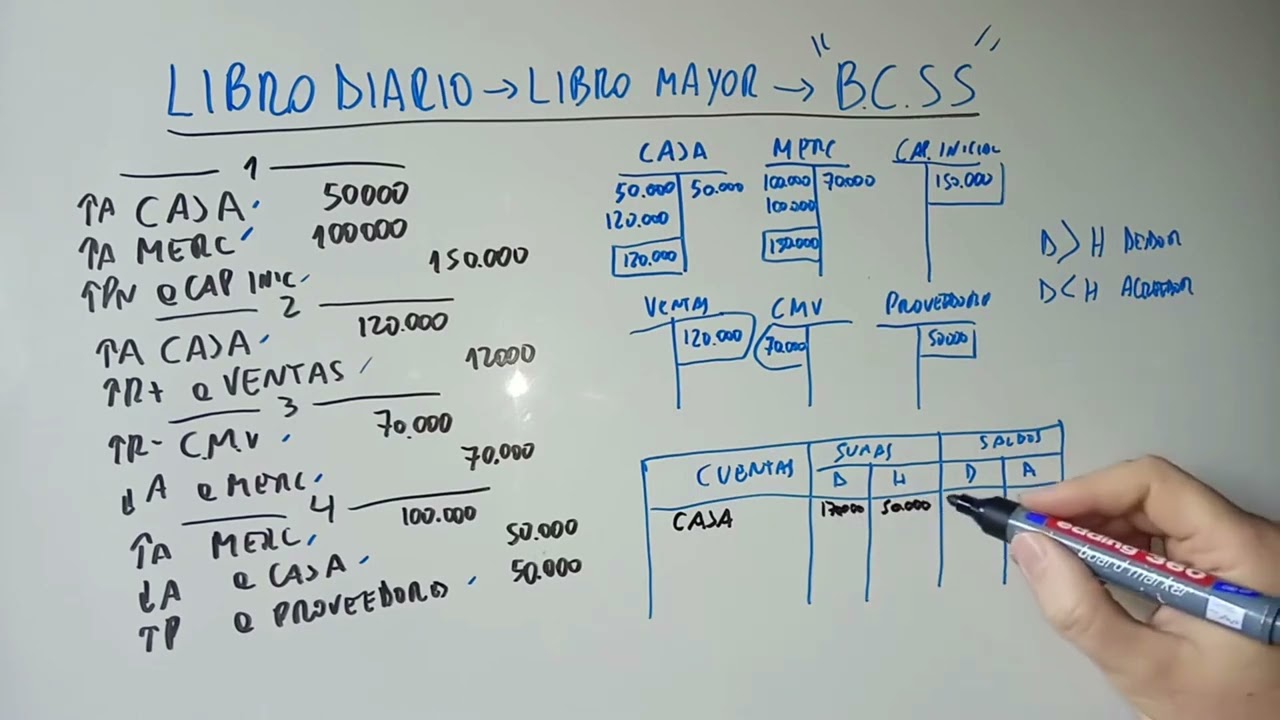 LIBRO DIARIO → LIBRO MAYOR → "B.C.SS"
1
↑A CAJA 50000
↑A MERC 100000
↑PN a CAP INIC. 150.000
2
↑A CAJA 120.000
↑R+ a VENTAS 12000
3
↑R- C.M.V 70.000
↓A a MERC. 70.000
4
↑A MERC. 100.000
↓A a CAJA 50.000
↑P a PROVEEDORES 50.000
CAJA
50.000 50.000
120.000
120.000
MERC
100.000 70.000
100.000
130.000
CAP. INICIAL
150.000
D > H DEUDOR
D < H ACREEDOR
VENTAS
120.000
CMV
70.000
PROVEEDORES
50000
CUENTAS SUMAS SALDOS
D H D A
CAJA 170000 50.000
edding 360
board marker